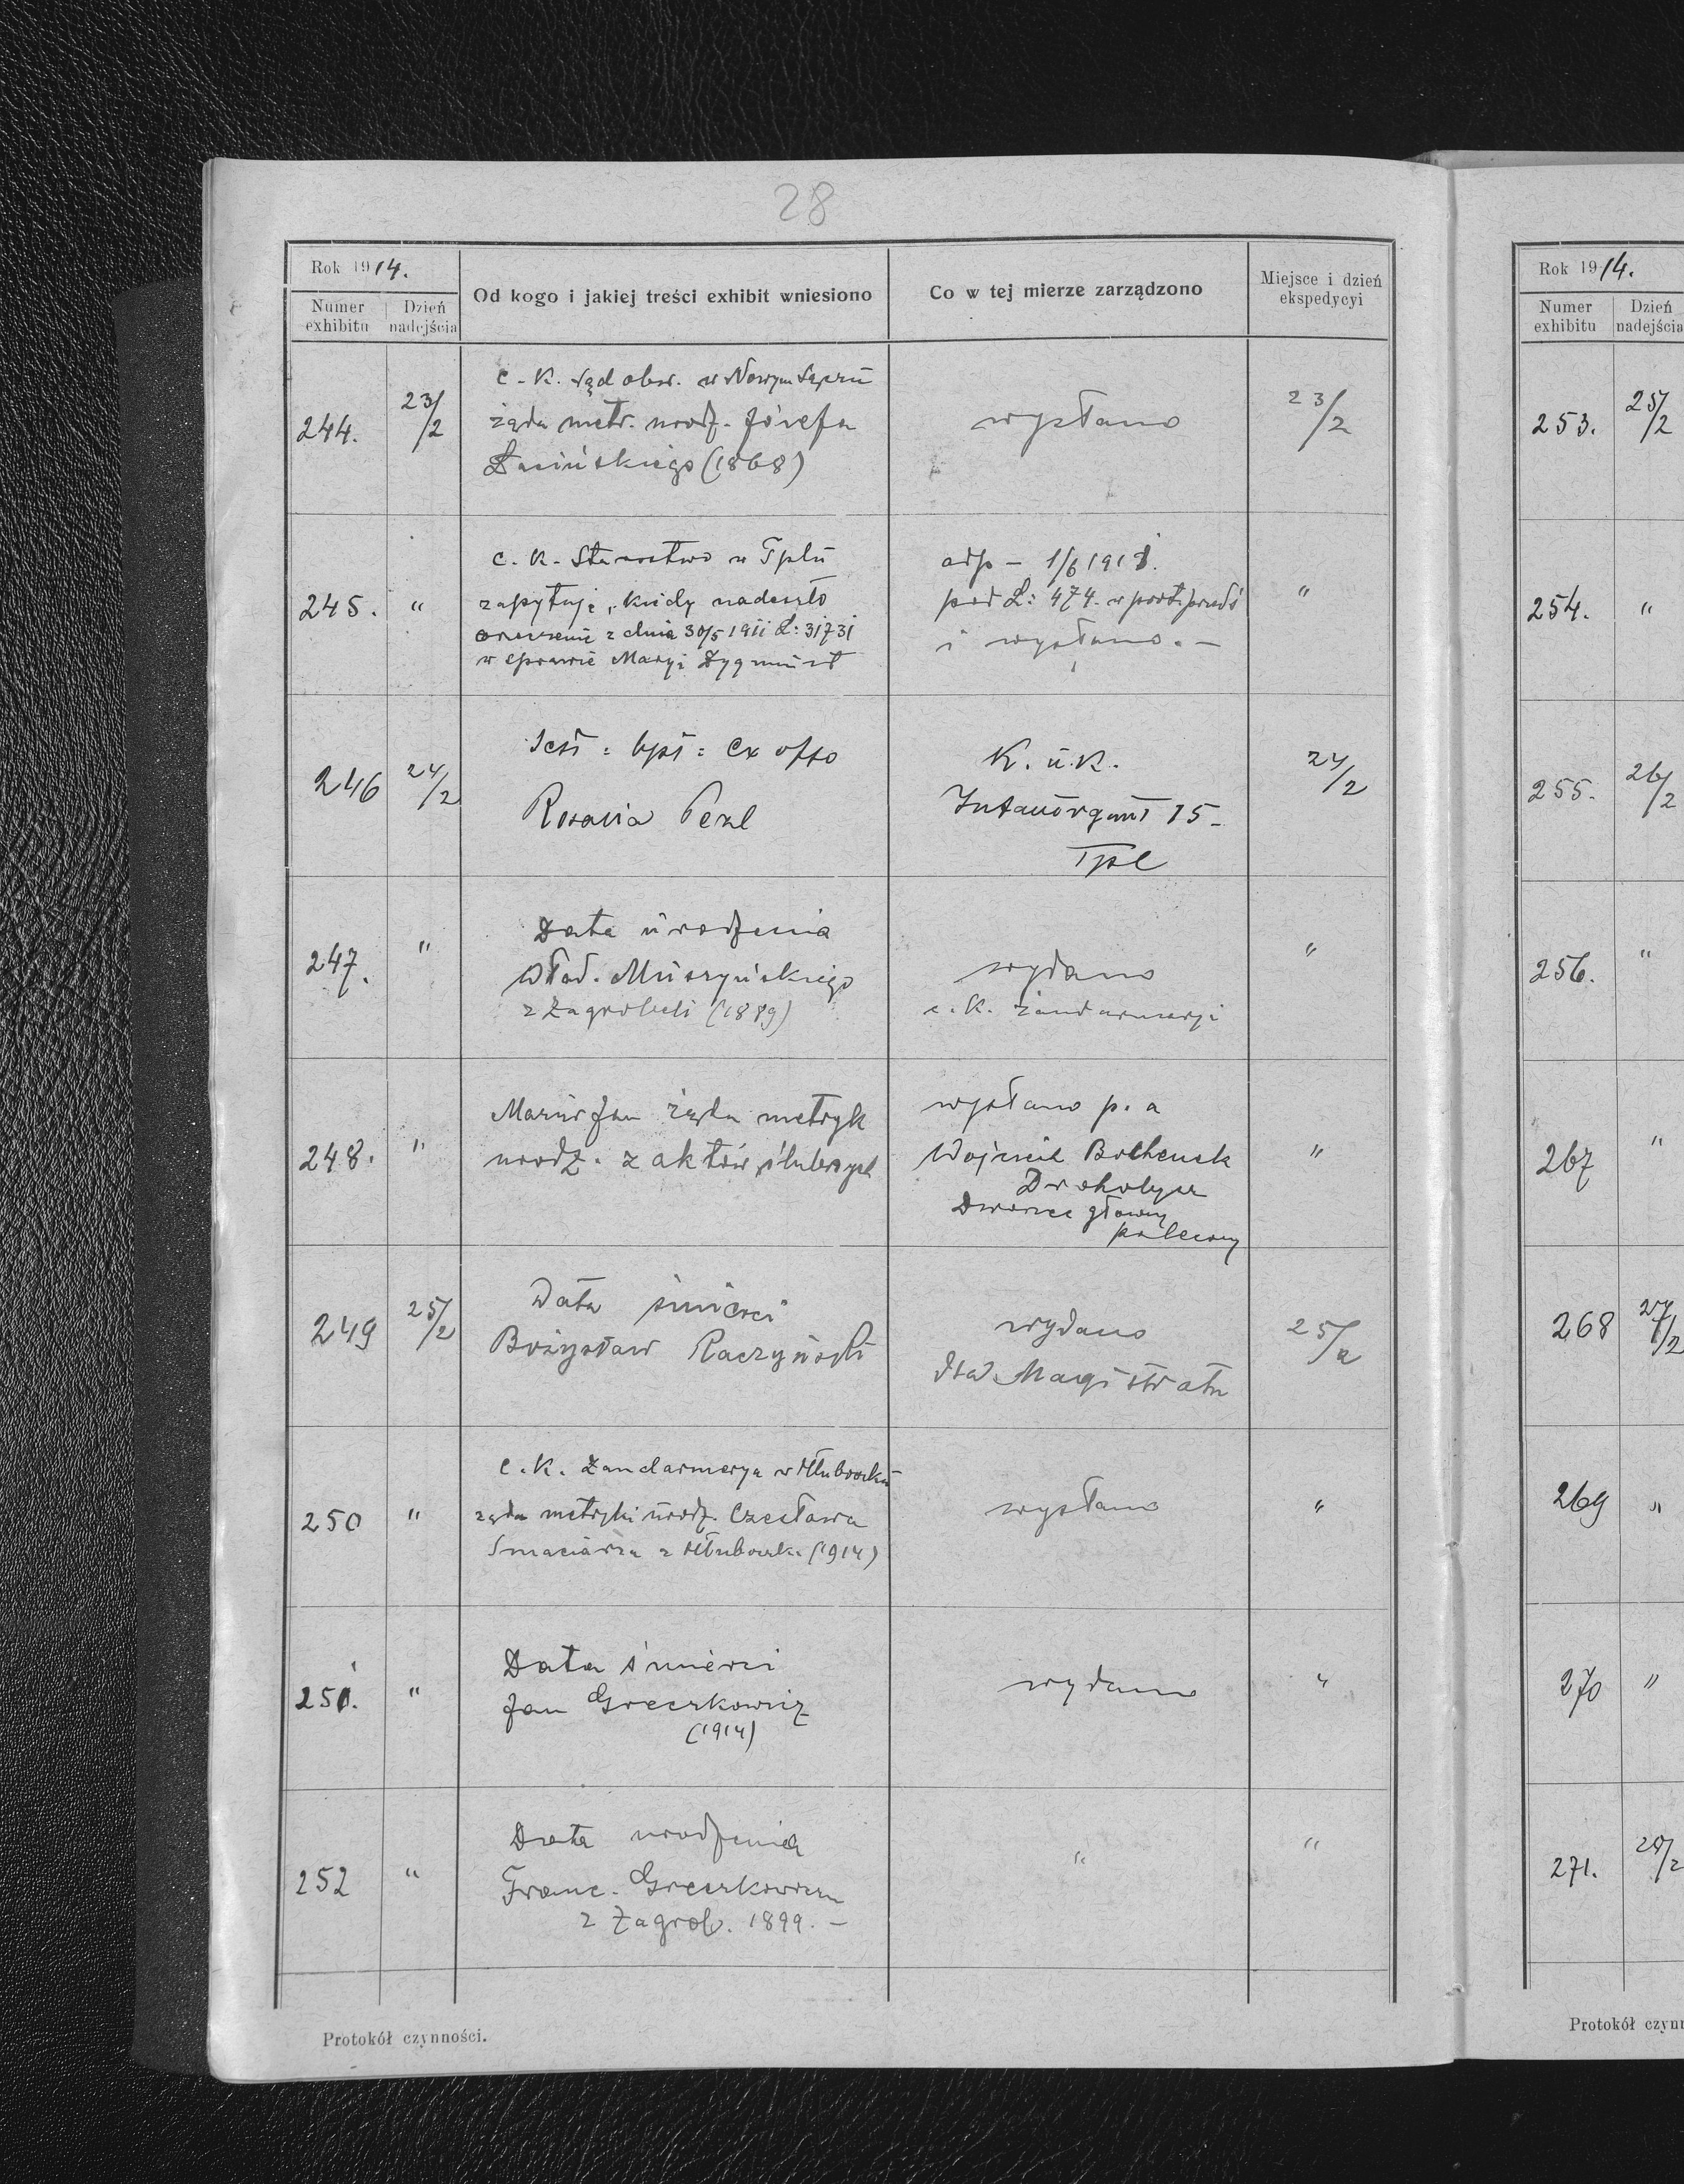 28
Rok 1914.
Numer exhibitu
Dzień nadejścia
Od kogo i jakiej treści exhibit wniesiono
Co w tej mierze zarządzono
Miejsce i dzień ekspedycyi
244.
23/2
c. k. sąd obw. w Nowym Sączu
żąda metr. urodz. Józefa
(1868)
wysłano
23/2
245.
"
c. k. Starostwo w Tplu
zapytuje, kiedy nadeszło
orzeczenie z dnia 30/5 1911 L: 31731
w sprawie Maryi Dygmunt
odp - 1/6 1911.
pod L: 474.
i wysłano. -
"
246
24/2
ex offo
Rozalia Perl
K. u. K.
15-
Tpl
24/2
247.
"
Data urodzenia
Wład. Muszyńskiego
z Zagrobeli (1889)
wydano
c. k. żandarmeryi
"
248.
"
Jan żąda metryk
urodz. z aktów ślubnych
wysłano p. a
Wojciech Bochenek
Drohobycz
Dworzec główny
polecony
"
249
25/2
Data śmierci
Bożysław Raczyński
wydano
dla Magistratu
25/2
250
"
c. k. Żandarmerya w Hłuboczku
żąda metryki urodz. Czesława
z Hłuboczka (1914)
wysłano
"
251.
"
Data śmierci
Jan Greczkowicz
(1914)
wydano
"
252
"
Data urodzenia
Franc. Greczkowicza
z Zagrob. 1899. -
"
"
Protokół czynności.
Rok 1914.
Numer exhibitu
Dzień nadejścia
253.
25/2
254.
"
255.
26/2
256.
"
267
"
268
27/2
269
"
270
"
271.
28/2
Protokół czynn